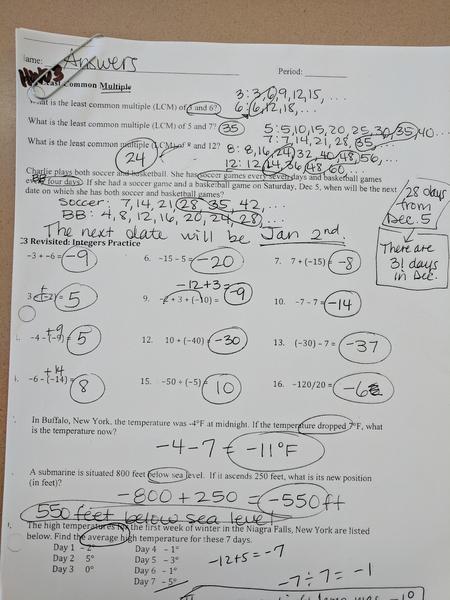 ame: Answers
Period:
HW 3
east Common Multiple
3: 3, 6, 9, 12, 15, ...
What is the least common multiple (LCM) of 3 and 6?
6: 6, 12, 18, ...
What is the least common multiple (LCM) of 5 and 7? 35
5: 5, 10, 15, 20, 25, 30, 35, 40 ...
7: 7, 14, 21, 28, 35, ...
What is the least common multiple (LCM) of 8 and 12?
8: 8, 16, 24, 32, 40, 48, 56, ...
24
12: 12, 24, 36, 48, 60 ...
Charlie plays both soccer and basketball. She has soccer games every seven days and basketball games
four days. If she had a soccer game and a basketball game on Saturday, Dec 5, when will be the next
date on which she has both soccer and basketball games?
28 days from Dec. 5
Soccer: 7, 14, 21, 28, 35, 42, ...
BB: 4, 8, 12, 16, 20, 24, 28, ...
The next date will be Jan 2nd.
There are 31 days in Dec.
C3 Revisited: Integers Practice
-3 + -6 = -9
6. -15 - 5 = -20
7. 7 + (-15) = -8
-12 + 3 =
3 - (-2) = 5
9. -2 + 3 + (-10) = -9
10. -7 - 7 = -14
+9
-4 - (-9) = 5
12. 10 + (-40) = -30
13. (-30) - 7 = -37
+14
-6 - (-14) = 8
15. -50 ÷ (-5) = 10
16. -120/20 = -6
In Buffalo, New York, the temperature was -4°F at midnight. If the temperature dropped 7°F, what
is the temperature now?
-4 - 7 = -11°F
A submarine is situated 800 feet below sea level. If it ascends 250 feet, what is its new position
(in feet)?
-800 + 250 = -550 ft
550 feet below sea level
The high temperatures for the first week of winter in the Niagra Falls, New York are listed
below. Find the average high temperature for these 7 days.
Day 1 -2°
Day 4 -1°
Day 2 5°
Day 5 -3°
-12 + 5 = -7
Day 3 0°
Day 6 -1°
Day 7 -5°
-7 ÷ 7 = -1